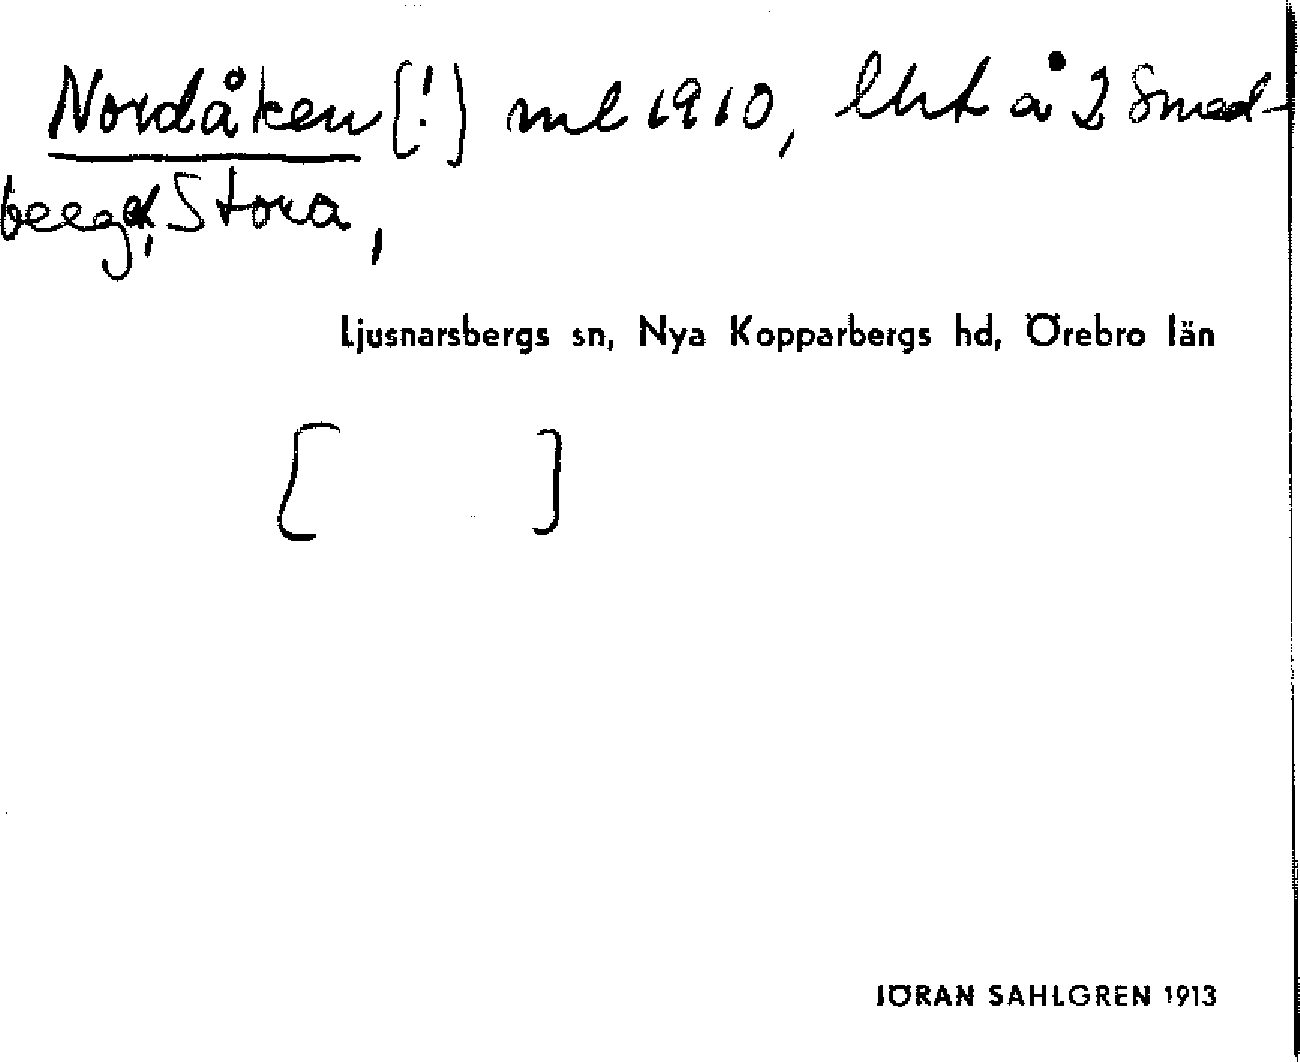 Nordåken [!] ml 1910, lht å 2 Smed-
berget, Stora,
Ljusnarsbergs sn, Nya Kopparbergs hd, Örebro län
[ ]
JÖRAN SAHLGREN 1913